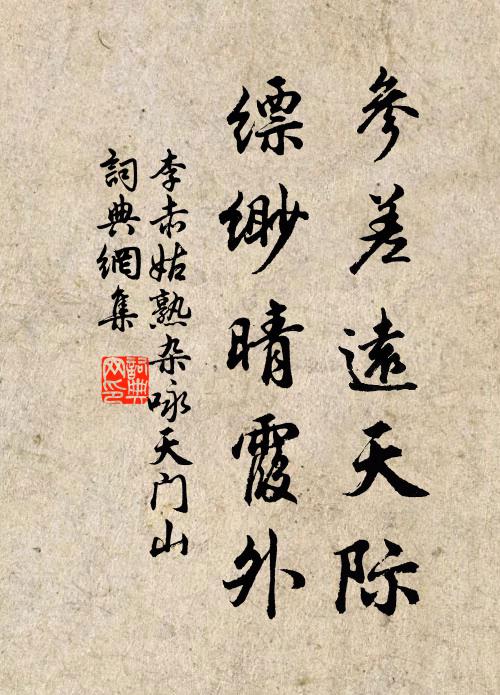 參差遠天际
缥缈晴霞外
李赤姑熟杂咏天门山
詞典網集
詞典
网印